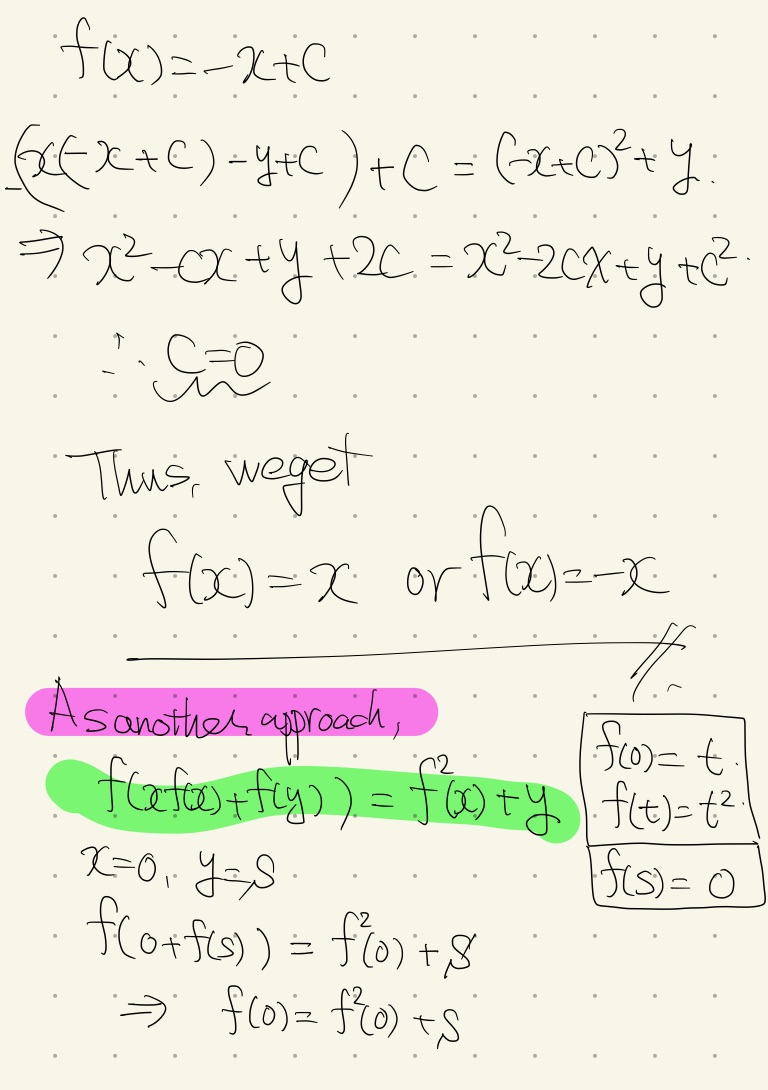 f(x)=-x+C
-(x(-x+C)-y+C)+C=(-x+C)²+y.
⇒ x²-cx+y+2C=x²-2Cx+y+C².
∴ C=0
Thus, we get
f(x)=x or f(x)=-x
As another approach,
f(xf(x)+f(y))=f²(x)+y
f(0)=t.
f(t)=t².
f(s)=0
x=0, y=s
f(0+f(s))=f²(0)+s
⇒ f(0)=f²(0)+s